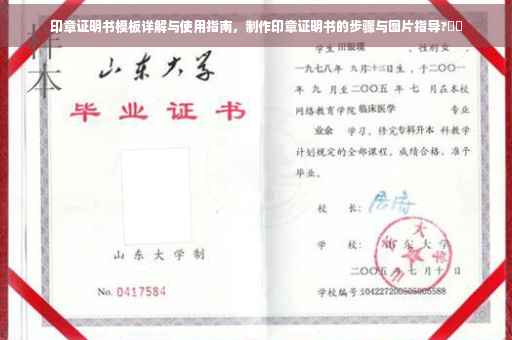 印章证明书模板详解与使用指南，制作印章证明书的步骤与图片指导?
样本
山东大学
毕业证书
山东大学制
No. 0417584
学生 田银瑛 ，性别 女 ，
一九七八年 九月十三日生，于二〇〇一
年 九 月至二〇〇五 年 七 月在本校
网络教育学院 临床医学 专业
业余 学习，修完专科升本 科教学
计划规定的全部课程，成绩合格，准予
毕业。
校 长：
学 校：山东大学
二〇〇五年 七 月 十 日
学校编号:104227200505005588
山东大学